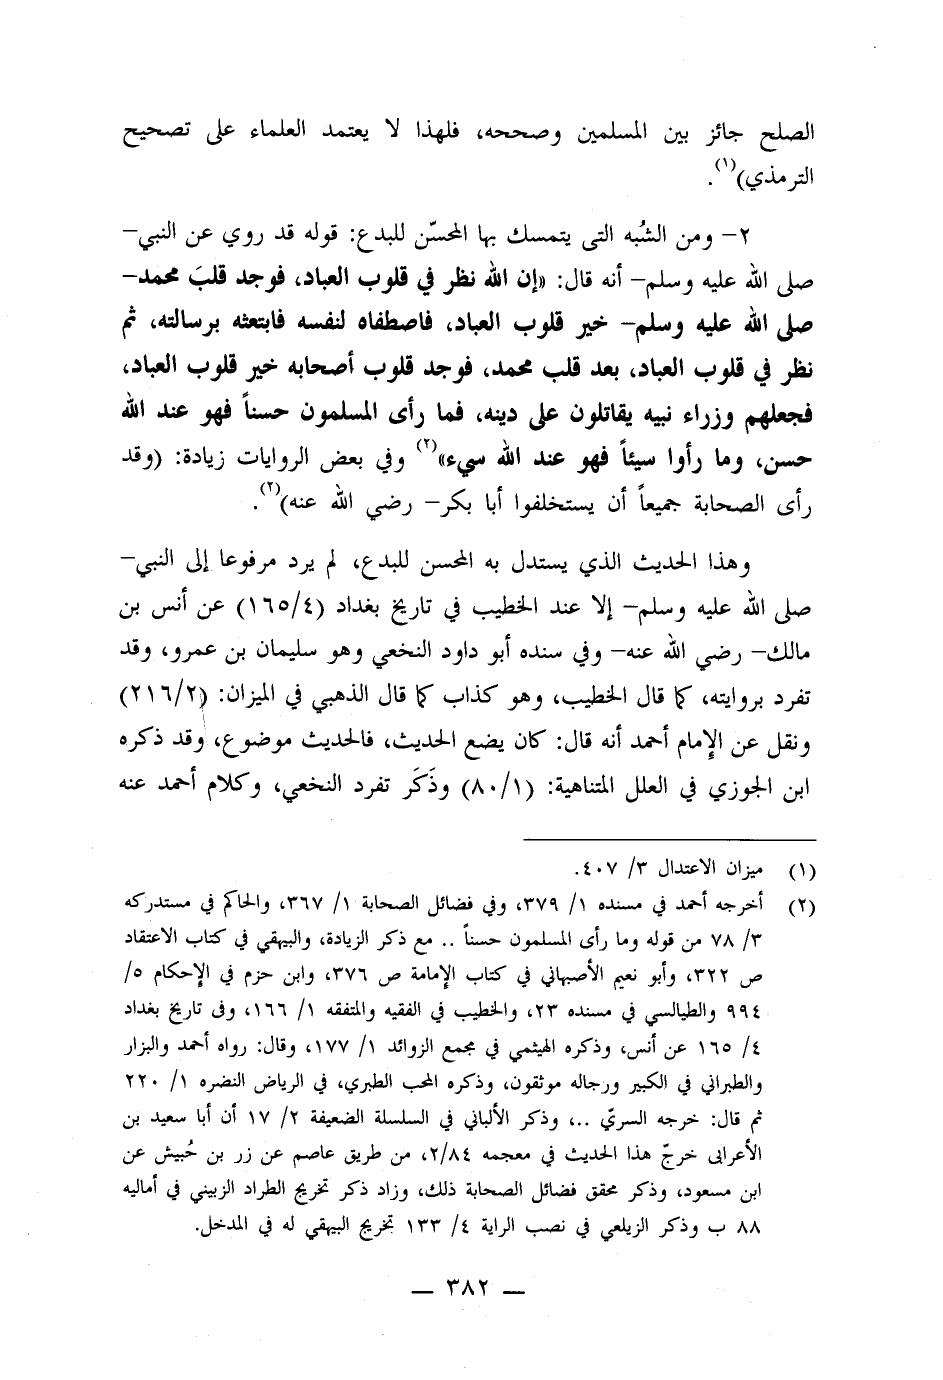 الصلح جائز بين المسلمين وصححه، فلهذا لا يعتمد العلماء على تصحيح
الترمذي)(١).
٢- ومن الشُبه التى يتمسك بها المحسّن للبدع: قوله قد روي عن النبي-
صلى الله عليه وسلم- أنه قال: «إن الله نظر في قلوب العباد، فوجد قلبَ محمد-
صلى الله عليه وسلم- خير قلوب العباد، فاصطفاه لنفسه فابتعثه برسالته، ثم
نظر في قلوب العباد، بعد قلب محمد، فوجد قلوب أصحابه خير قلوب العباد،
فجعلهم وزراء نبيه يقاتلون على دينه، فما رأى المسلمون حسناً فهو عند الله
حسن، وما رأوا سيئاً فهو عند الله سيء»(٢) وفي بعض الروايات زيادة: (وقد
رأى الصحابة جميعاً أن يستخلفوا أبا بكر- رضي الله عنه)(٢).
وهذا الحديث الذي يستدل به المحسن للبدع، لم يرد مرفوعا إلى النبي-
صلى الله عليه وسلم- إلا عند الخطيب في تاريخ بغداد (١٦٥/٤) عن أنس بن
مالك- رضي الله عنه- وفي سنده أبو داود النخعي وهو سليمان بن عمرو، وقد
تفرد بروايته، كما قال الخطيب، وهو كذاب كما قال الذهبي في الميزان: (٢١٦/٢)
ونقل عن الإمام أحمد أنه قال: كان يضع الحديث، فالحديث موضوع، وقد ذكره
ابن الجوزي في العلل المتناهية: (٨٠/١) وذَكَر تفرد النخعي، وكلام أحمد عنه
(١) ميزان الاعتدال ٣/ ٤٠٧.
(٢) أخرجه أحمد في مسنده ١/ ٣٧٩، وفي فضائل الصحابة ١/ ٣٦٧، والحاكم في مستدركه
٣/ ٧٨ من قوله وما رأى المسلمون حسناً .. مع ذكر الزيادة، والبيهقي في كتاب الاعتقاد
ص ٣٢٢، وأبو نعيم الأصبهاني في كتاب الإمامة ص ٣٧٦، وابن حزم في الإحكام ٥/
٩٩٤ والطيالسي في مسنده ٢٣، والخطيب في الفقيه والمتفقه ١/ ١٦٦، وفى تاريخ بغداد
٤/ ١٦٥ عن أنس، وذكره الهيثمي في مجمع الزوائد ١/ ١٧٧، وقال: رواه أحمد والبزار
والطبراني في الكبير ورجاله موثقون، وذكره المحب الطبري، في الرياض النضره ١/ ٢٢٠
ثم قال: خرجه السريّ ..، وذكر الألباني في السلسلة الضعيفة ٢/ ١٧ أن أبا سعيد بن
الأعرابى خرجّ هذا الحديث في معجمه ٢/٨٤، من طريق عاصم عن زر بن حُبيش عن
ابن مسعود، وذكر محقق فضائل الصحابة ذلك، وزاد ذكر تخريج الطراد الزبيني في أماليه
٨٨ ب وذكر الزيلعي في نصب الراية ٤/ ١٣٣ تخريج البيهقي له في المدخل.
— ٣٨٢ —